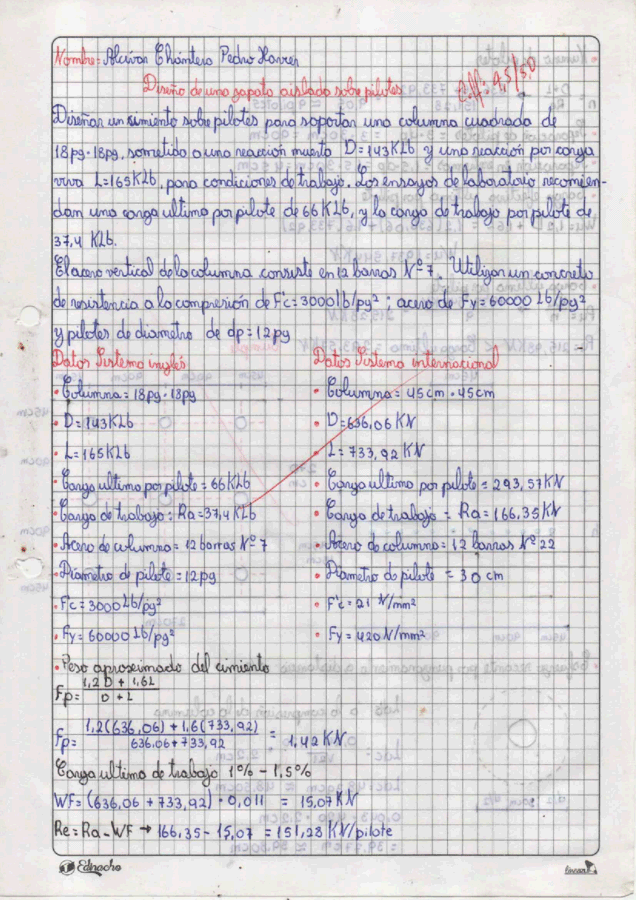 Nombre: Alcívar Chantera Pedro Xavier
Diseño de una zapata aislada sobre pilotes
Diseñar un cimiento sobre pilotes para soportar una columna cuadrada de
18pg·18pg, sometida a una reacción muerta D=143KLb y una reacción por carga
viva L=165KLb, para condiciones de trabajo. Los ensayos de laboratorio recomien-
dan una carga ultima por pilote de 66KLb, y la carga de trabajo por pilote de
37,4 KLb.
El acero vertical de la columna consiste en 12 barras Nº 7. Utilizar un concreto
de resistencia a la compresión de F'c=3000lb/pg²; acero de Fy=60000 Lb/pg²
y pilotes de diametro de dp=12pg
Datos Sistema inglés
Datos Sistema internacional
• Columna= 18pg·18pg
• Columna= 45cm·45cm
• D=143KLb
• D=636,06KN
• L=165KLb
• L=733,92KN
• Carga ultima por pilote=66KLb
• Carga ultima por pilote=293,57KN
• Carga de trabajo: Ra=37,4KLb
• Carga de trabajo= Ra=166,35KN
• Acero de columna=12 barras Nº 7
• Acero de columna=12 barras Nº 22
• Diametro de pilote=12pg
• Diametro de pilote = 30 cm
• F'c=3000Lb/pg²
• F'c=21 N/mm²
• Fy=60000 Lb/pg²
• Fy=420N/mm²
• Peso aproximado del cimiento
Fp= 1,2D + 1,6L / D + L
Fp= 1,2(636,06) + 1,6(733,92) / 636,06+733,92 = 1,42 KN
Carga ultima de trabajo 1% - 1,5%
WF=(636,06 + 733,92)·0,011 = 15,07KN
Re=Ra-WF → 166,35-15,07 =151,28 KN/pilote
Ednacho